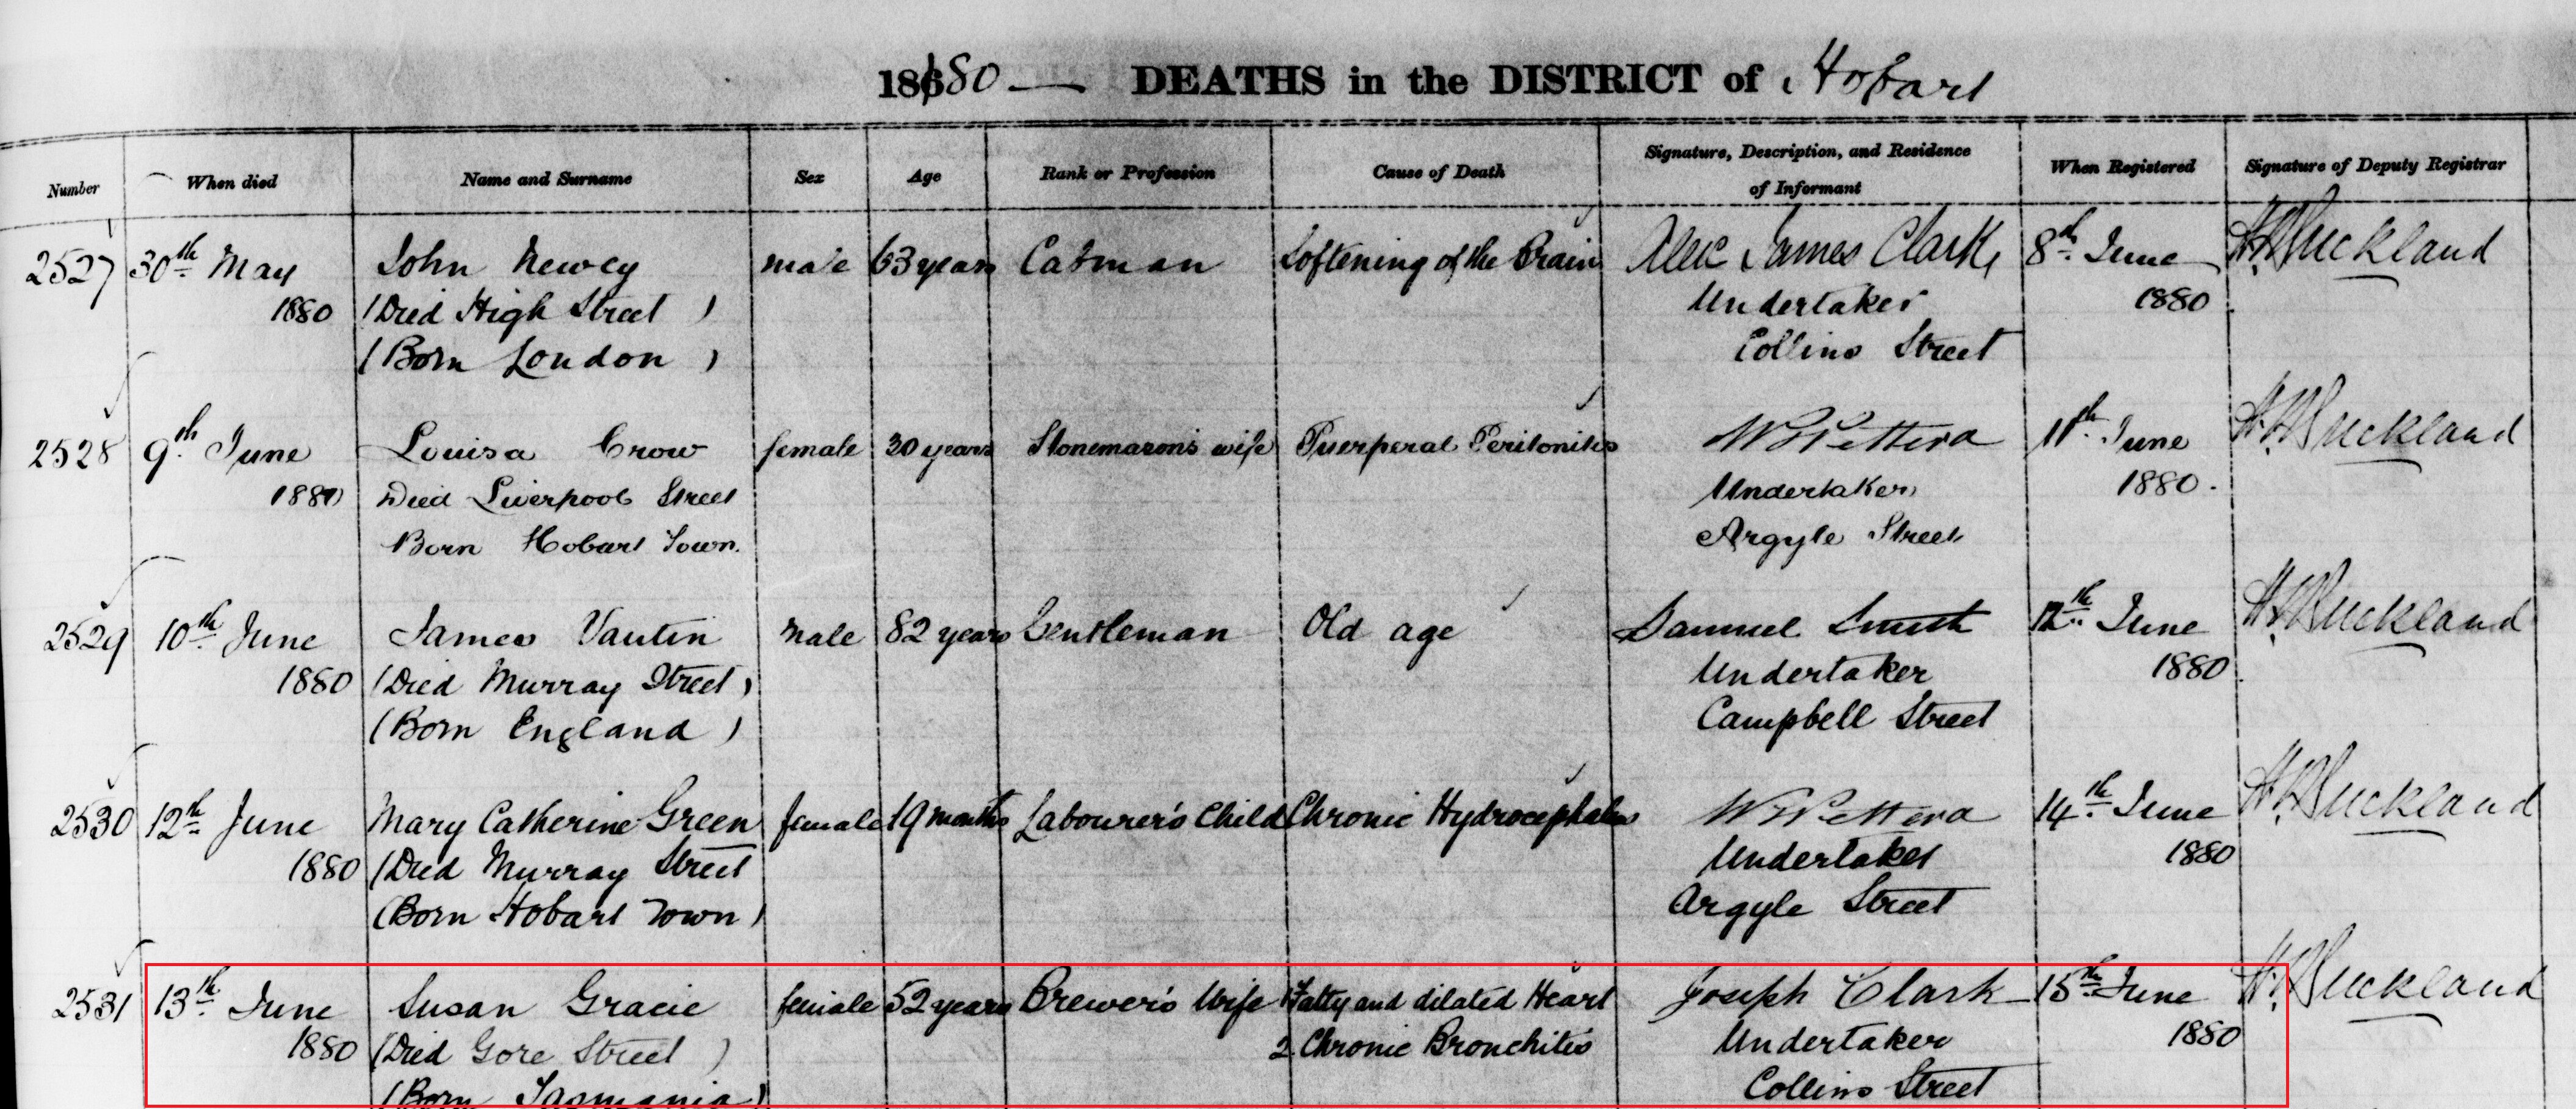 186180 — DEATHS in the DISTRICT of Hobart
Number When died Name and Surname Sex Age Rank or Profession Cause of Death Signature, Description, and Residence of Informant When Registered Signature of Deputy Registrar
2527 30th May John Newey male 63 years Cabman Softening of the Brain Alec James Clark 8th June Buckland
1880 (Died High Street ) Undertaker 1880
(Born London ) Collins Street
2528 9th June Louisa Crow female 30 years Stonemason's wife Puerperal Peritonitis 11th June Buckland
1880 Died Liverpool Street Undertaker 1880.
Born Hobart Town. Argyle Street
2529 10th June James Vautin male 82 years Gentleman Old age Samuel Smith 12th June Buckland
1880 (Died Murray Street) Undertaker 1880
(Born England ) Campbell Street
2530 12th June Mary Catherine Green female 19 months Labourer's Child Chronic Hydrocephalus 14th June Buckland
1880 (Died Murray Street Undertaker 1880
(Born Hobart Town) Argyle Street
2531 13th June Susan Gracie female 52 years Brewer's Wife 1 Fatty and dilated Heart Joseph Clark 15th June Buckland
1880 (Died Gore Street ) 2 Chronic Bronchitis Undertaker 1880
(Born Tasmania) Collins Street